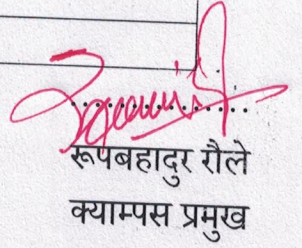 रूपबहादुर रौले
क्याम्पस प्रमुख